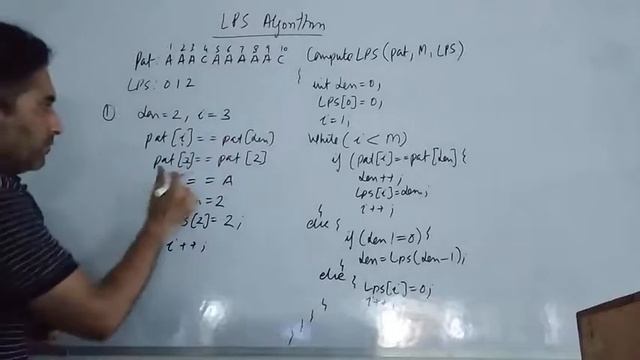 LPS Algorithm
1 2 3 4 5 6 7 8 9 10
Pat: A A A C A A A A A C
LPS: 0 1 2
① len=2, i=3
pat[i]==pat[len]
pat[3]==pat[2]
= = A
=2
[2]=2;
i++;
ComputeLPS(pat, M, LPS)
{
int len=0;
LPS[0]=0;
i=1;
While(i<M)
if (pat[i]==pat[len]{
len++;
Lps[i]=len;
i++;
}
else {
if (len!=0){
len=Lps(len-1);
}
else {
Lps[i]=0;
i++;
}
}
}
}